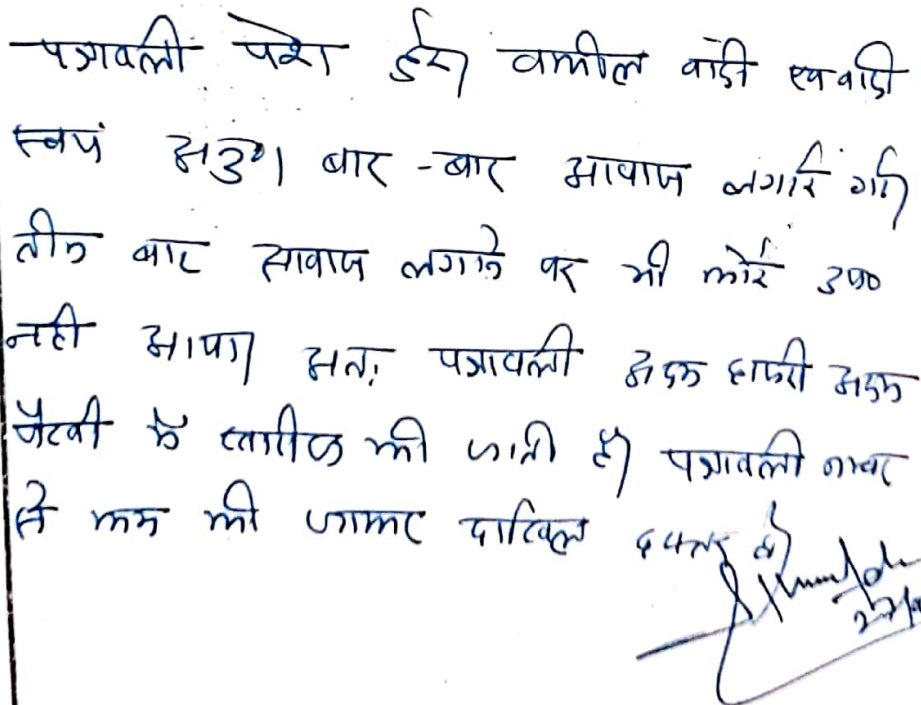 पत्रावली पेश हुई। वकील वादी एवं वादी
स्वयं अनु०। बार-बार आवाज लगाई गई।
तीन बार आवाज लगाने पर भी कोई उप०
नही आया। अतः पत्रावली अदम हाजरी अदम
पैरवी मे खारीज की जाती है। पत्रावली नम्बर
से कम की जाकर दाखिल दफ्तर हो।